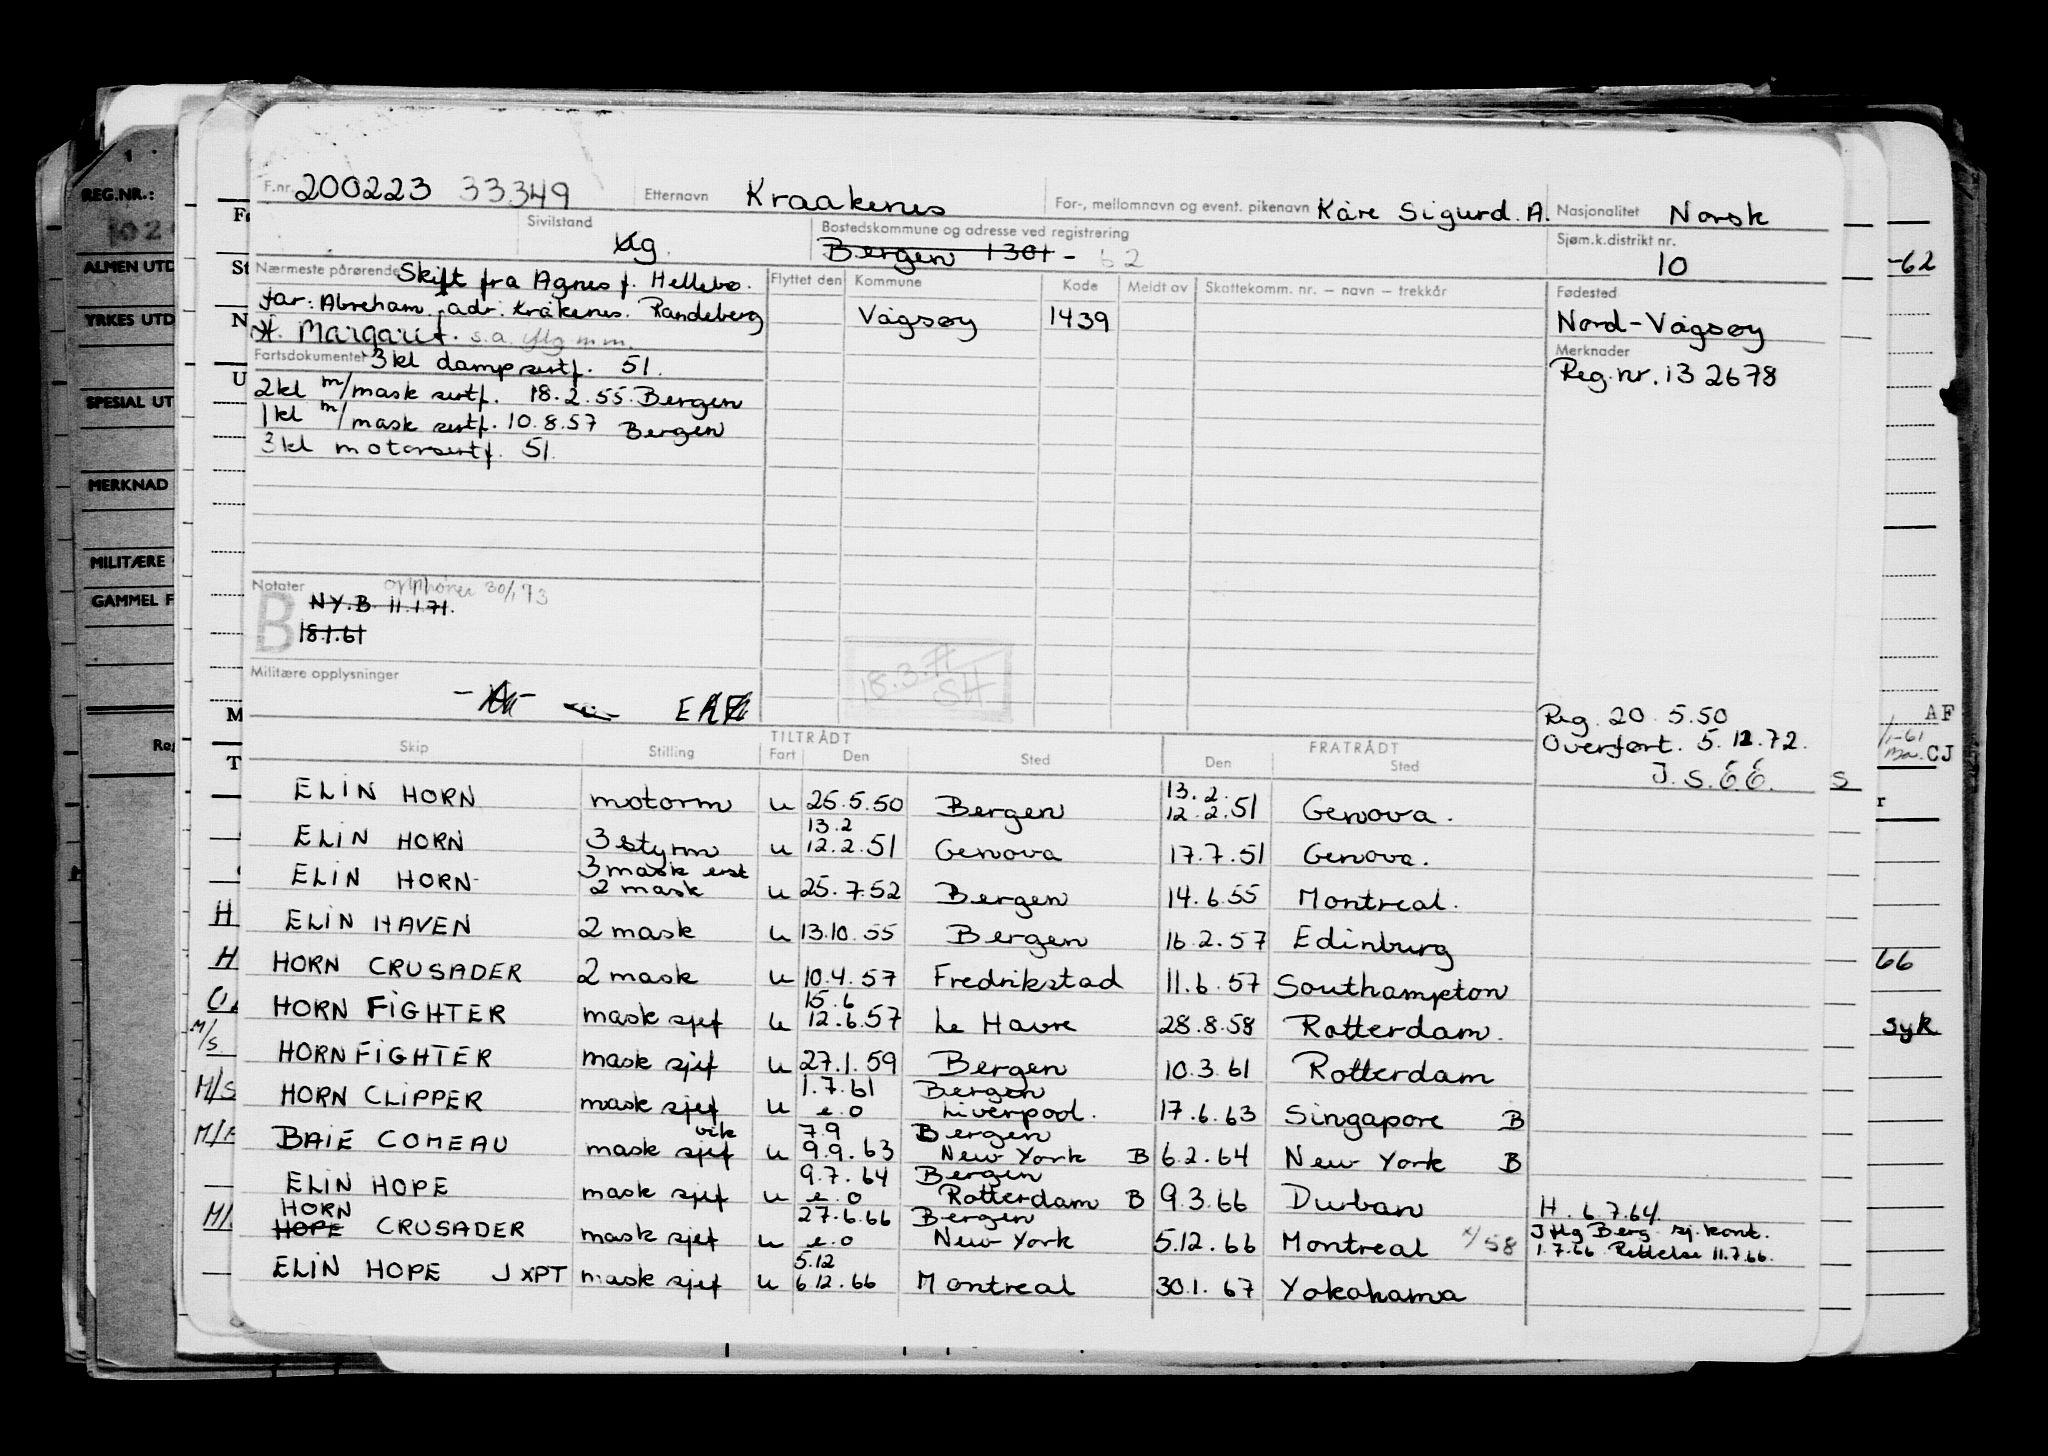 F.nr. 200223 33349 Etternavn Kraakenes For-, mellomnavn og event. pikenavn Kåre Sigurd. A. Nasjonalitet Norsk
Sivilstand Ug. Bostedskommune og adresse ved registrering Bergen 1301 - 62 Sjøm.k.distrikt nr. 10
Nærmeste pårørende Skift fra Agnes f. Hellebø. Flyttet den Kommune Kode Meldt av Skattekomm. nr. – navn – trekkår Fødested
far: Abreham. adr. Kråkenes. Randeberg Vågsøy 1439 Nord-Vågsøy
Margarit. s.a.
Fartsdokumenter 3 kl dampsertf. 51. Merknader
2 kl m/mask sertf. 18.2.55. Bergen Reg.nr. 132678
1 kl m/mask sertf. 10.8.57 Bergen
3 kl motorsertf. 51.
Notater opphører 30/1 73
B NY.B. 11.1.71.
18.1.61
Militære opplysninger
18.3.71
SH
Reg. 20.5.50
Overført. 5.12.72.
J.S.ÉÉ.
TILTRÅDT FRATRÅDT
Skip Stilling Fart Den Sted Den Sted
ELIN HORN motorm u 25.5.50 Bergen 13.2. 12.2.51 Genova.
ELIN HORN 3 styrm u 13.2 12.2.51 Genova 17.7.51 Genova.
ELIN HORN 3 mask erst 2 mask u 25.7.52 Bergen 14.6.55 Montreal.
ELIN HAVEN 2 mask u 13.10.55 Bergen 16.2.57 Edinburg
HORN CRUSADER 2 mask u 10.4.57 Fredrikstad 11.6.57 Southampton
HORN FIGHTER mask sjef u 15.6 12.6.57 Le Havre 28.8.58 Rotterdam.
HORN FIGHTER mask sjef u 27.1.59 Bergen 10.3.61 Rotterdam
HORN CLIPPER mask sjef u 1.7.61 e.o Bergen Liverpool. 17.6.63 Singapore B
BAIE COMEAU mask sjef vik u 7.9 9.9.63 Bergen New York B 6.2.64 New York B
ELIN HOPE mask sjef u 9.7.64 e.o Bergen Rotterdam B 9.3.66 Durban H. 6.7.64.
HORN
HOPE CRUSADER mask sjef u 27.6.66 e.o Bergen New York 5.12.66 Montreal x/58 J Hg Berg sj. kont. 1.7.66 Rettelse 11.7.66.
ELIN HOPE JXPT mask sjef u 5.12 6.12.66 Montreal 30.1.67 Yokohama
REG.NR.:
ALMEN UTD
YRKES UTD
SPESIAL UT
MERKNAD
MILITÆRE
GAMMEL F
Reg
-62
AF
CJ
S
66
syk
M/S
M/S